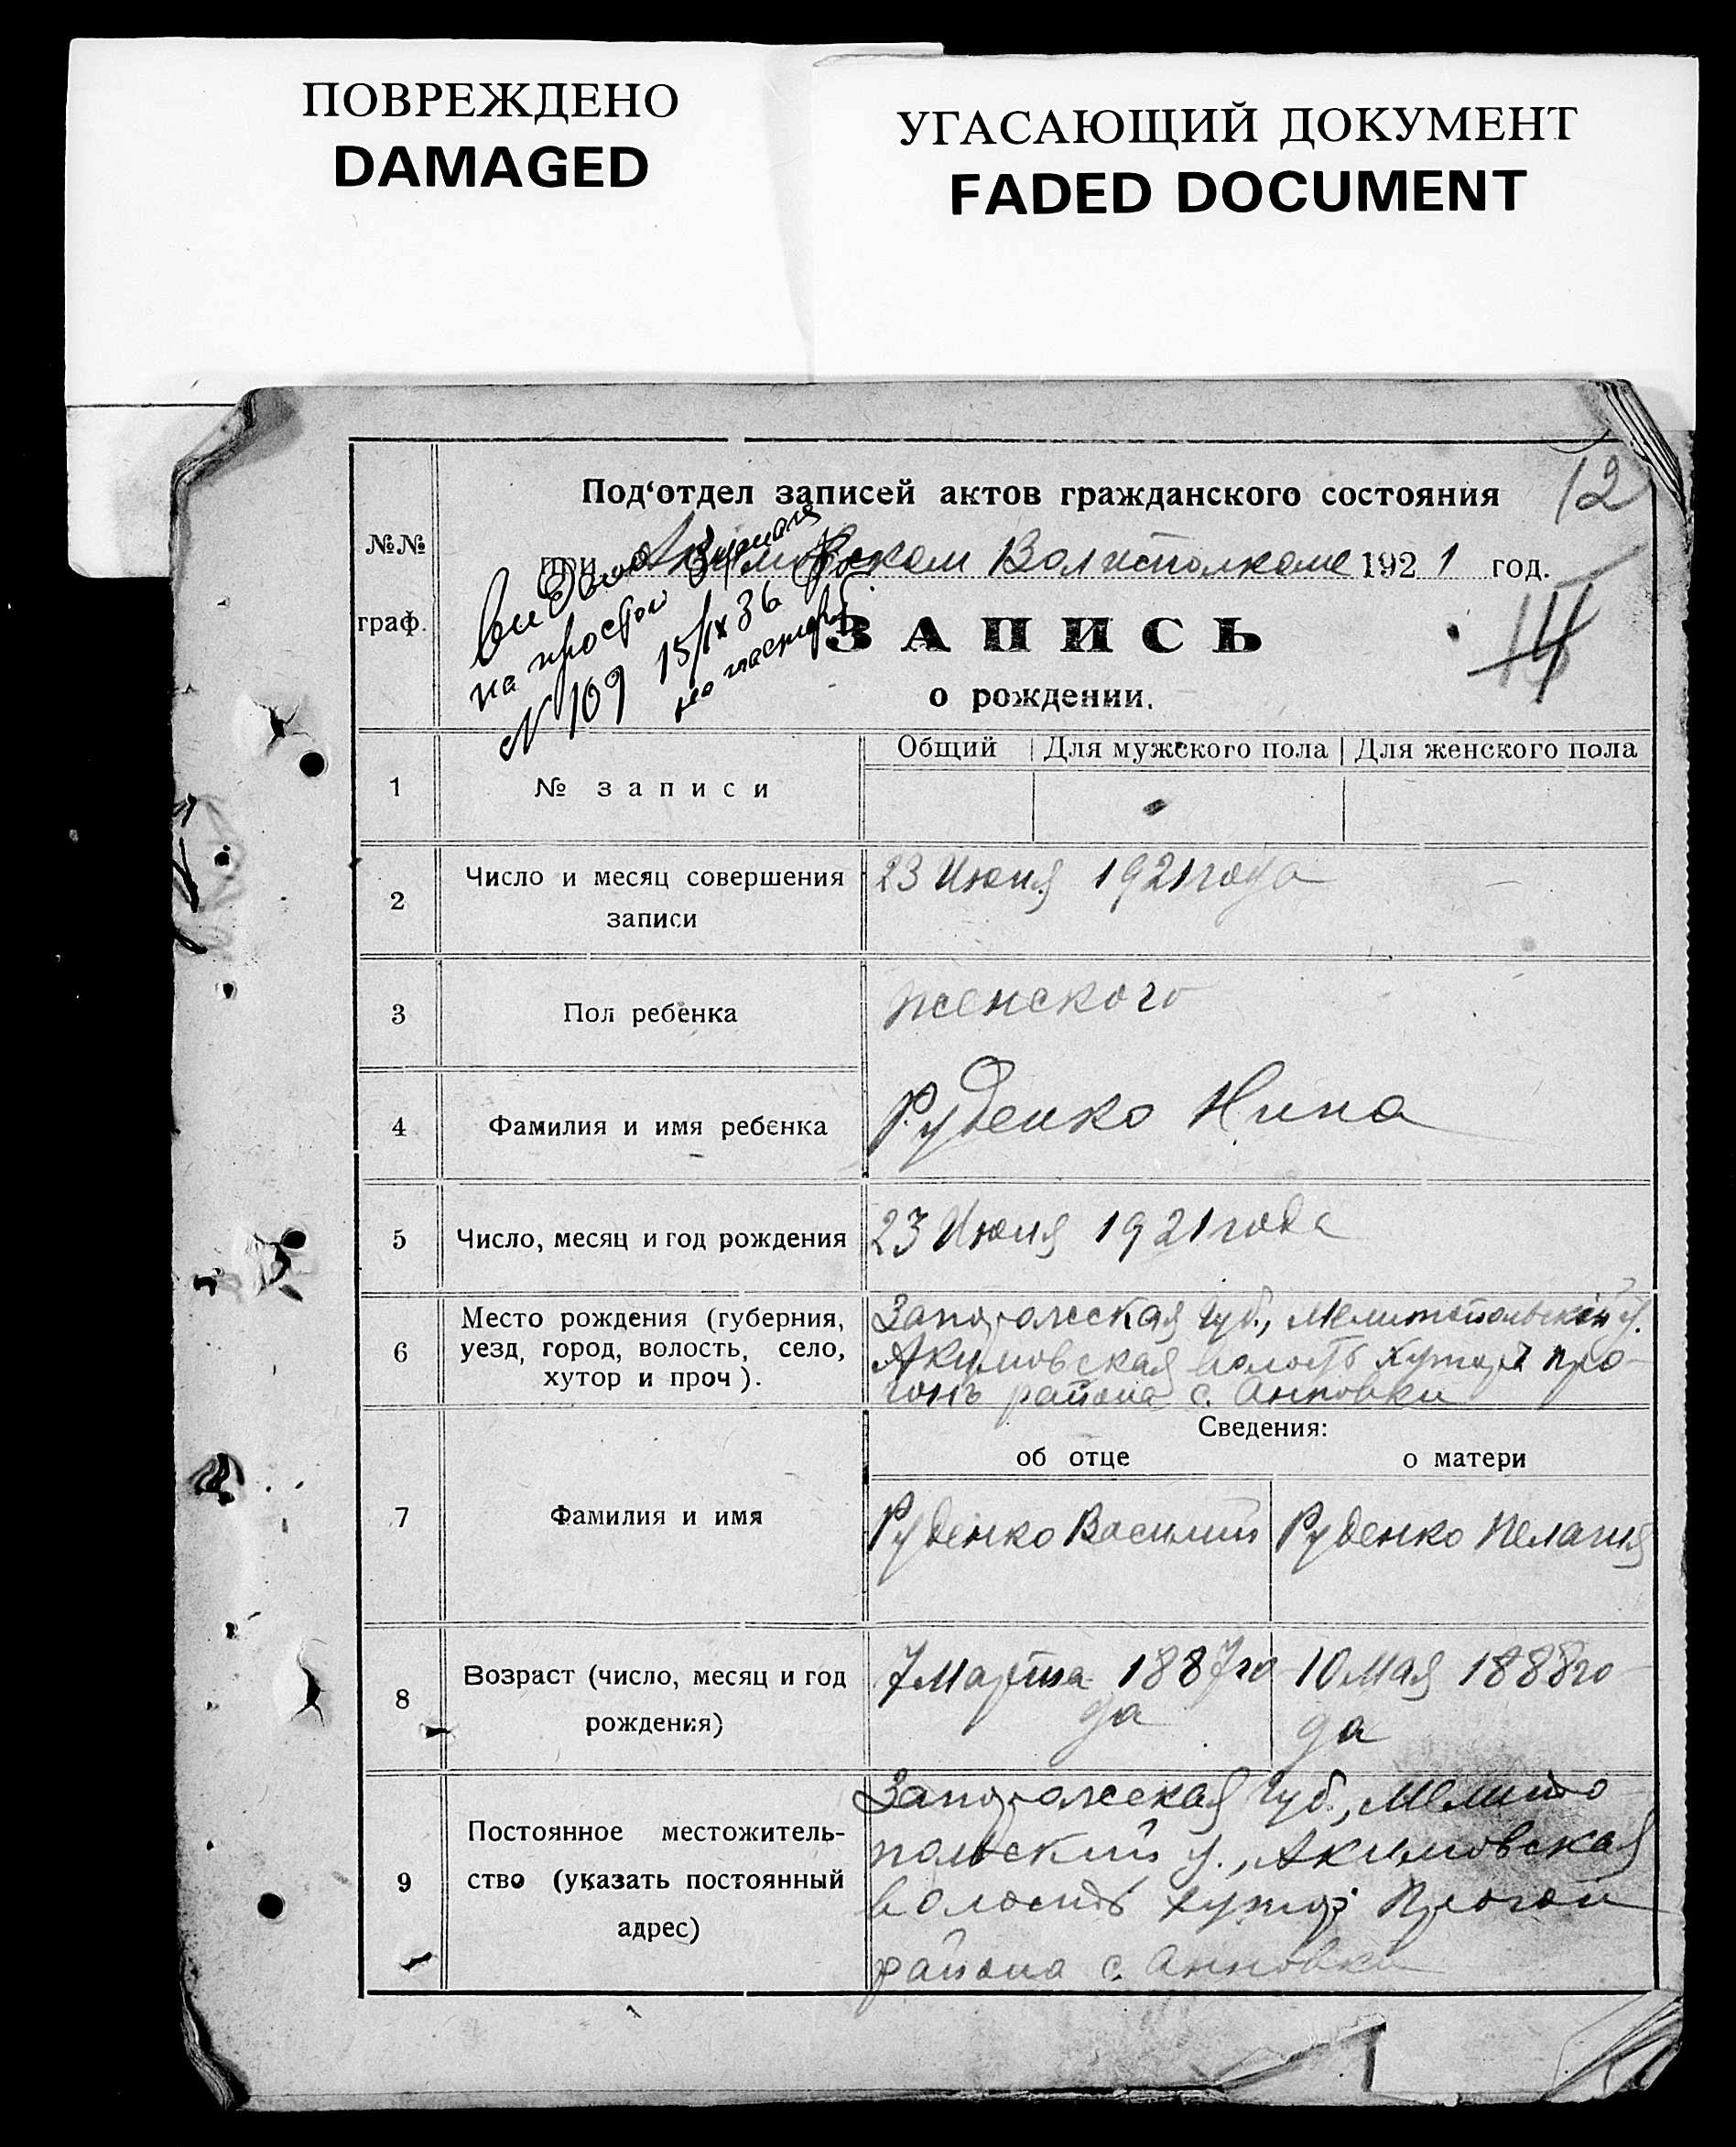 ПОВРЕЖДЕНО
DAMAGED
УГАСАЮЩИЙ ДОКУМЕНТ
FADED DOCUMENT
12
Под‘отдел записей актов гражданского состояния
при Акимовском Волисполкоме 1921 год.
№№
граф.
на простой
N 109 15/IX 36
ЗАПИСЬ
о рождении.
Общий Для мужского пола Для женского пола
1 № записи
2 Число и месяц совершения
записи
23 Июня 1921 года
3 Пол ребёнка женского
4 Фамилия и имя ребенка Руденко Нина
5 Число, месяц и год рождения 23 Июня 1921 года
6 Место рождения (губерния,
уезд, город, волость, село,
хутор и проч).
Запорожская губ., Мелитопольский у.
Акимовская волость хутор Про-
гонъ района с. Анновки
Сведения:
об отце о матери
7 Фамилия и имя Руденко Василий Руденко Пелагия
8 Возраст (число, месяц и год
рождения)
7 Марта 1887 го
да
10 Мая 1888 го
да
9 Постоянное местожитель-
ство (указать постоянный
адрес)
Запорожская губ., Мелито
польский у., Акимовская
волость хутор
района с. Анновки